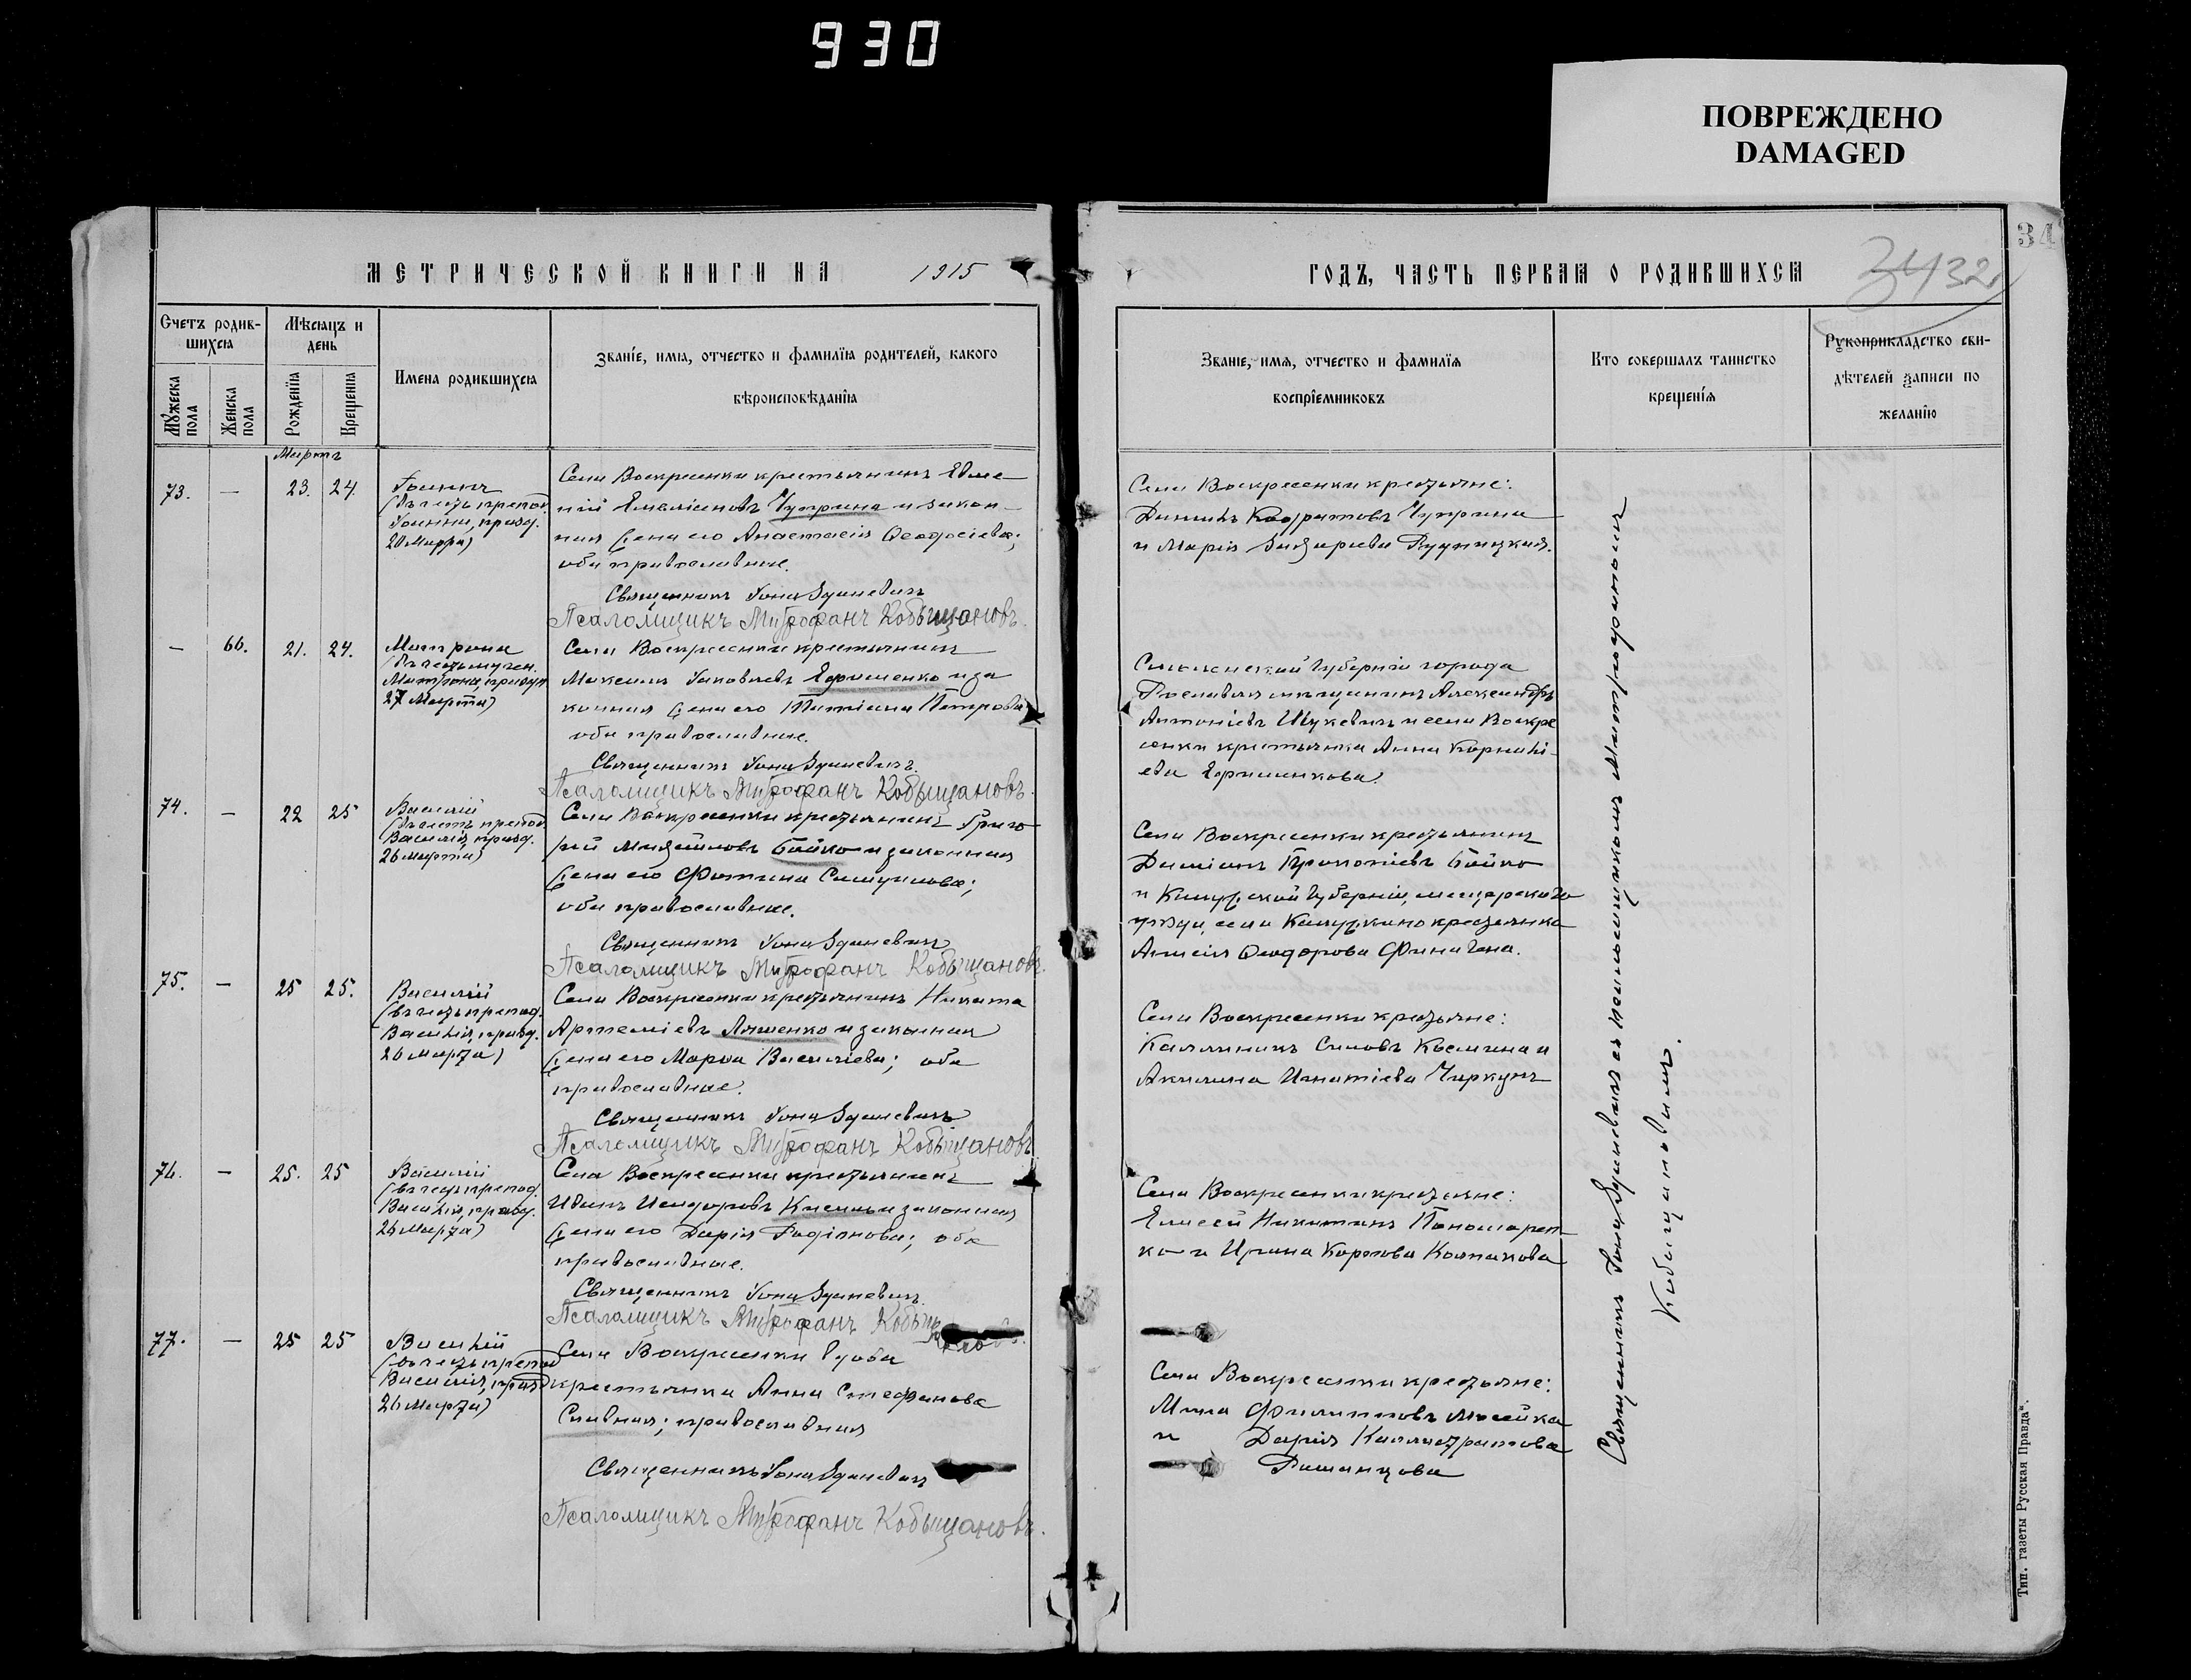 930
ПОВРЕЖДЕНО
DAMAGED
34
МЕТРИЧЕСКОЙ КНИГИ НА 1915
ГОДЪ, ЧАСТЬ ПЕРВАЯ О РОДИВШИХСЯ
3432
Счетъ родив-
шихся
Мужеска пола
Женска пола
Мѣсяцъ и
день
Рожденія
Крещенія
Имена родившихся
Званіе, имя, отчество и фамилія родителей, какого
вѣроисповѣданія
Званіе, имя, отчество и фамилія
воспріемниковъ
Кто совершалъ таинство
крещенія
Рукоприкладство сви-
дѣтелей записи по
желанію
Мартъ
73. — 23. 24.
Іоаннъ
(въ честь препод.
Іоанна, празд.
20 Марта)
Села Воскресенки крестьянинъ Евме-
ній Емеліановъ Чуприна и закон-
ная жена его Анастасія Ѳеодосіева;
оба православные.
Священникъ Іона
Псаломщикъ Митрофанъ Кобыщановъ.
Села Воскресенки крестьяне:
Кодратовъ Чуприна
и Марія Рудницкая.
— 66. 21. 24.
Матрона
(въ честь мучен.
Матроны, празд.
27 Марта)
Села Воскресенки крестьянинъ
Максимъ Іаковлевъ Ефименко и за
конная жена его Татіана Петрова
оба православные.
Священникъ Іона
Псаломщикъ Митрофанъ Кобыщановъ.
Смоленской губерніи города
Рославля мѣщанинъ Александръ
Антоніевъ Шукевичъ и села Воскре
сенки крестьянка Анна Корнилі-
ева Ефименкова.
74. — 22 25
Василій
(въ честь препод.
Василія, празд.
26 марта)
Села Воскресенки крестьянинъ Григо
рій Михайловъ Бойко и законная
жена его Фотина Самуилова;
оба православные.
Священникъ Іона
Псаломщикъ Митрофанъ Кобыщановъ.
Села Воскресенки крестьянинъ
Даміанъ Прокопіевъ Бойко
и Калужской губерніи, мещовскаго
уѣзда, села крестьянка
Ѳеодорова Финагина.
75. — 25 25.
Василій
(въ честь препод.
Василія, празд.
26 марта)
Села Воскресенки крестьянинъ Никита
Артеміевъ Ляшенко и законная
жена его Марѳа Василіева; оба
православные.
Священникъ Іона
Псаломщикъ Митрофанъ Кобыщановъ
Села Воскресенки крестьяне:
Каллиникъ Силовъ и
Акилина Игнатіева Чиркунъ
76. — 25. 25
Василій
(въ честь препод.
Василія, празд.
26 Марта)
Села Воскресенки крестьянинъ
Иванъ Исидоровъ и законная
жена его Дарія Родіонова; оба
православные.
Священникъ Іона
Псаломщикъ Митрофанъ Кобыщановъ.
Села Воскресенки крестьяне:
Елисей Никитинъ Пономарен-
ко и Ирина Карпова Колпакова
77. — 25 25
Василій
(въ честь препод
Василія, празд
26 Марта)
Села Воскресенки вдова
крестьянка Анна Стефанова
Славная; православная
Священникъ Іона
Псаломщикъ Митрофанъ Кобыщановъ.
Села Воскресенки крестьяне:
Мина Филипповъ Мосейка
и Дарія Каллистратова
Священникъ Іона съ псаломщикомъ Митрофаномъ
Кобыщановымъ.
Тип. газеты Русская Правда".